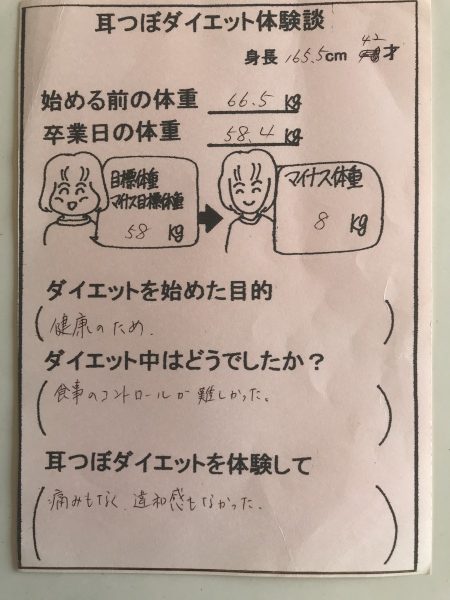 耳つぼダイエット体験談
身長 165.5cm 42才
始める前の体重 66.5 kg
卒業日の体重 58.4 kg
目標体重
マイナス目標体重
58 kg
マイナス体重
8 kg
ダイエットを始めた目的
健康のため.
ダイエット中はどうでしたか？
食事のコントロールが難しかった。
耳つぼダイエットを体験して
痛みもなく、違和感もなかった.